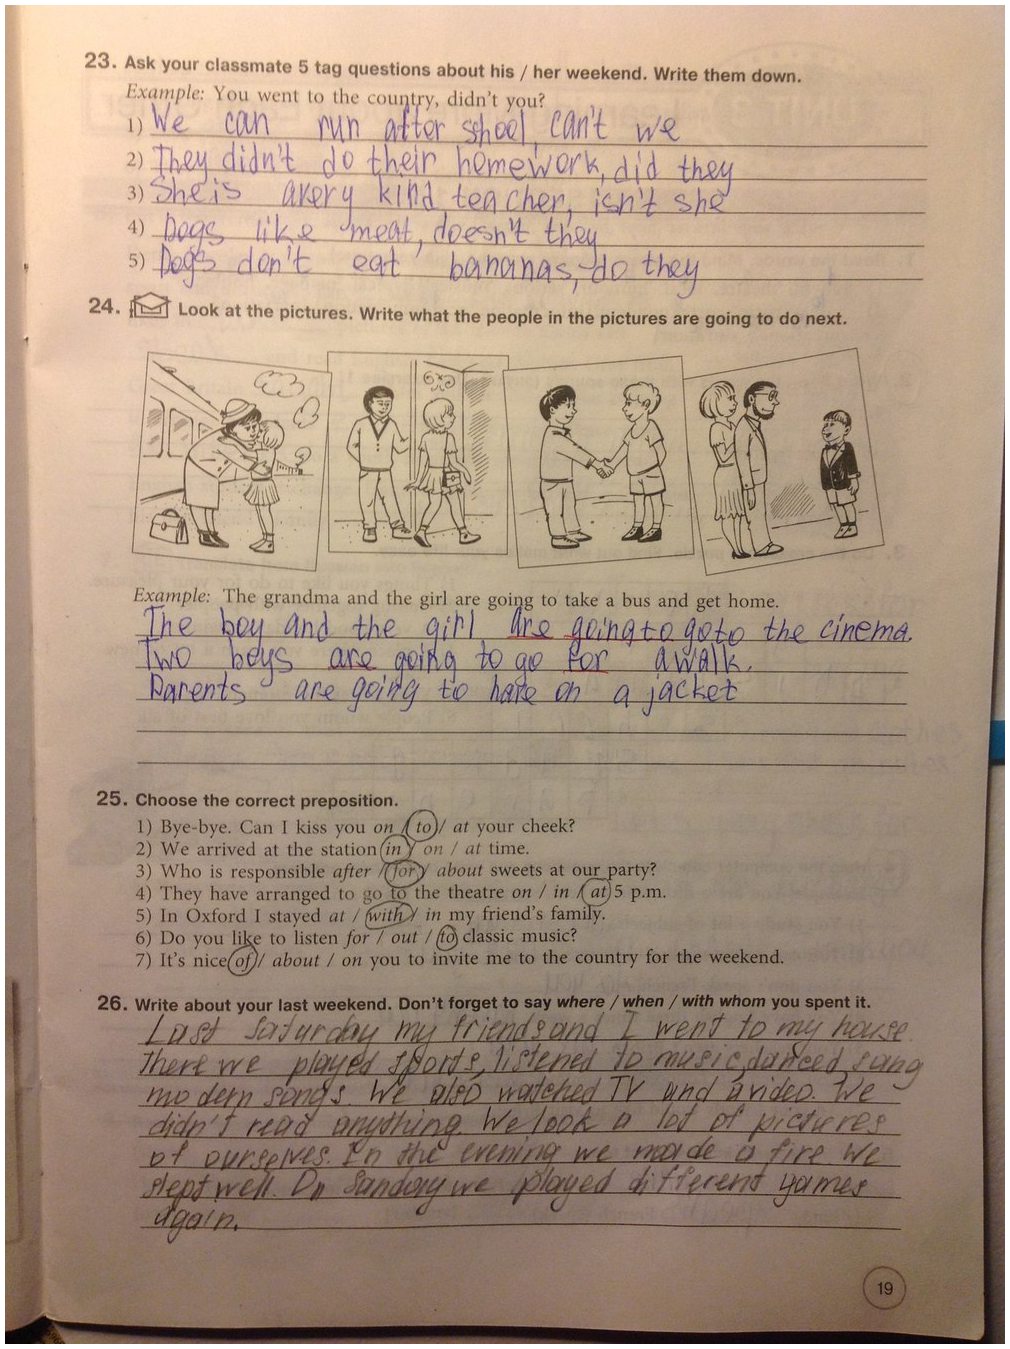 23. Ask your classmate 5 tag questions about his / her weekend. Write them down.
Example: You went to the country, didn't you?
1) We can run after school, can't we
2) They didn't do their homework, did they
3) She is a very kind teacher, isn't she
4) Dogs like meat, doesn't they
5) Dogs don't eat bananas, do they
24. Look at the pictures. Write what the people in the pictures are going to do next.
Example: The grandma and the girl are going to take a bus and get home.
The boy and the girl are going to go to the cinema.
Two boys are going to go for a walk.
Parents are going to have on a jacket
25. Choose the correct preposition.
1) Bye-bye. Can I kiss you on / to / at your cheek?
2) We arrived at the station in / on / at time.
3) Who is responsible after / for / about sweets at our party?
4) They have arranged to go to the theatre on / in / at 5 p.m.
5) In Oxford I stayed at / with / in my friend's family.
6) Do you like to listen for / out / to classic music?
7) It's nice of / about / on you to invite me to the country for the weekend.
26. Write about your last weekend. Don't forget to say where / when / with whom you spent it.
Last Saturday my friends and I went to my house.
There we played sports, listened to music, danced, sang
modern songs. We also watched TV and a video. We
didn't read anything. We look a lot of pictures
of ourselves. In the evening we made a fire. We
slept well. On Sanday we played different games
again.
19